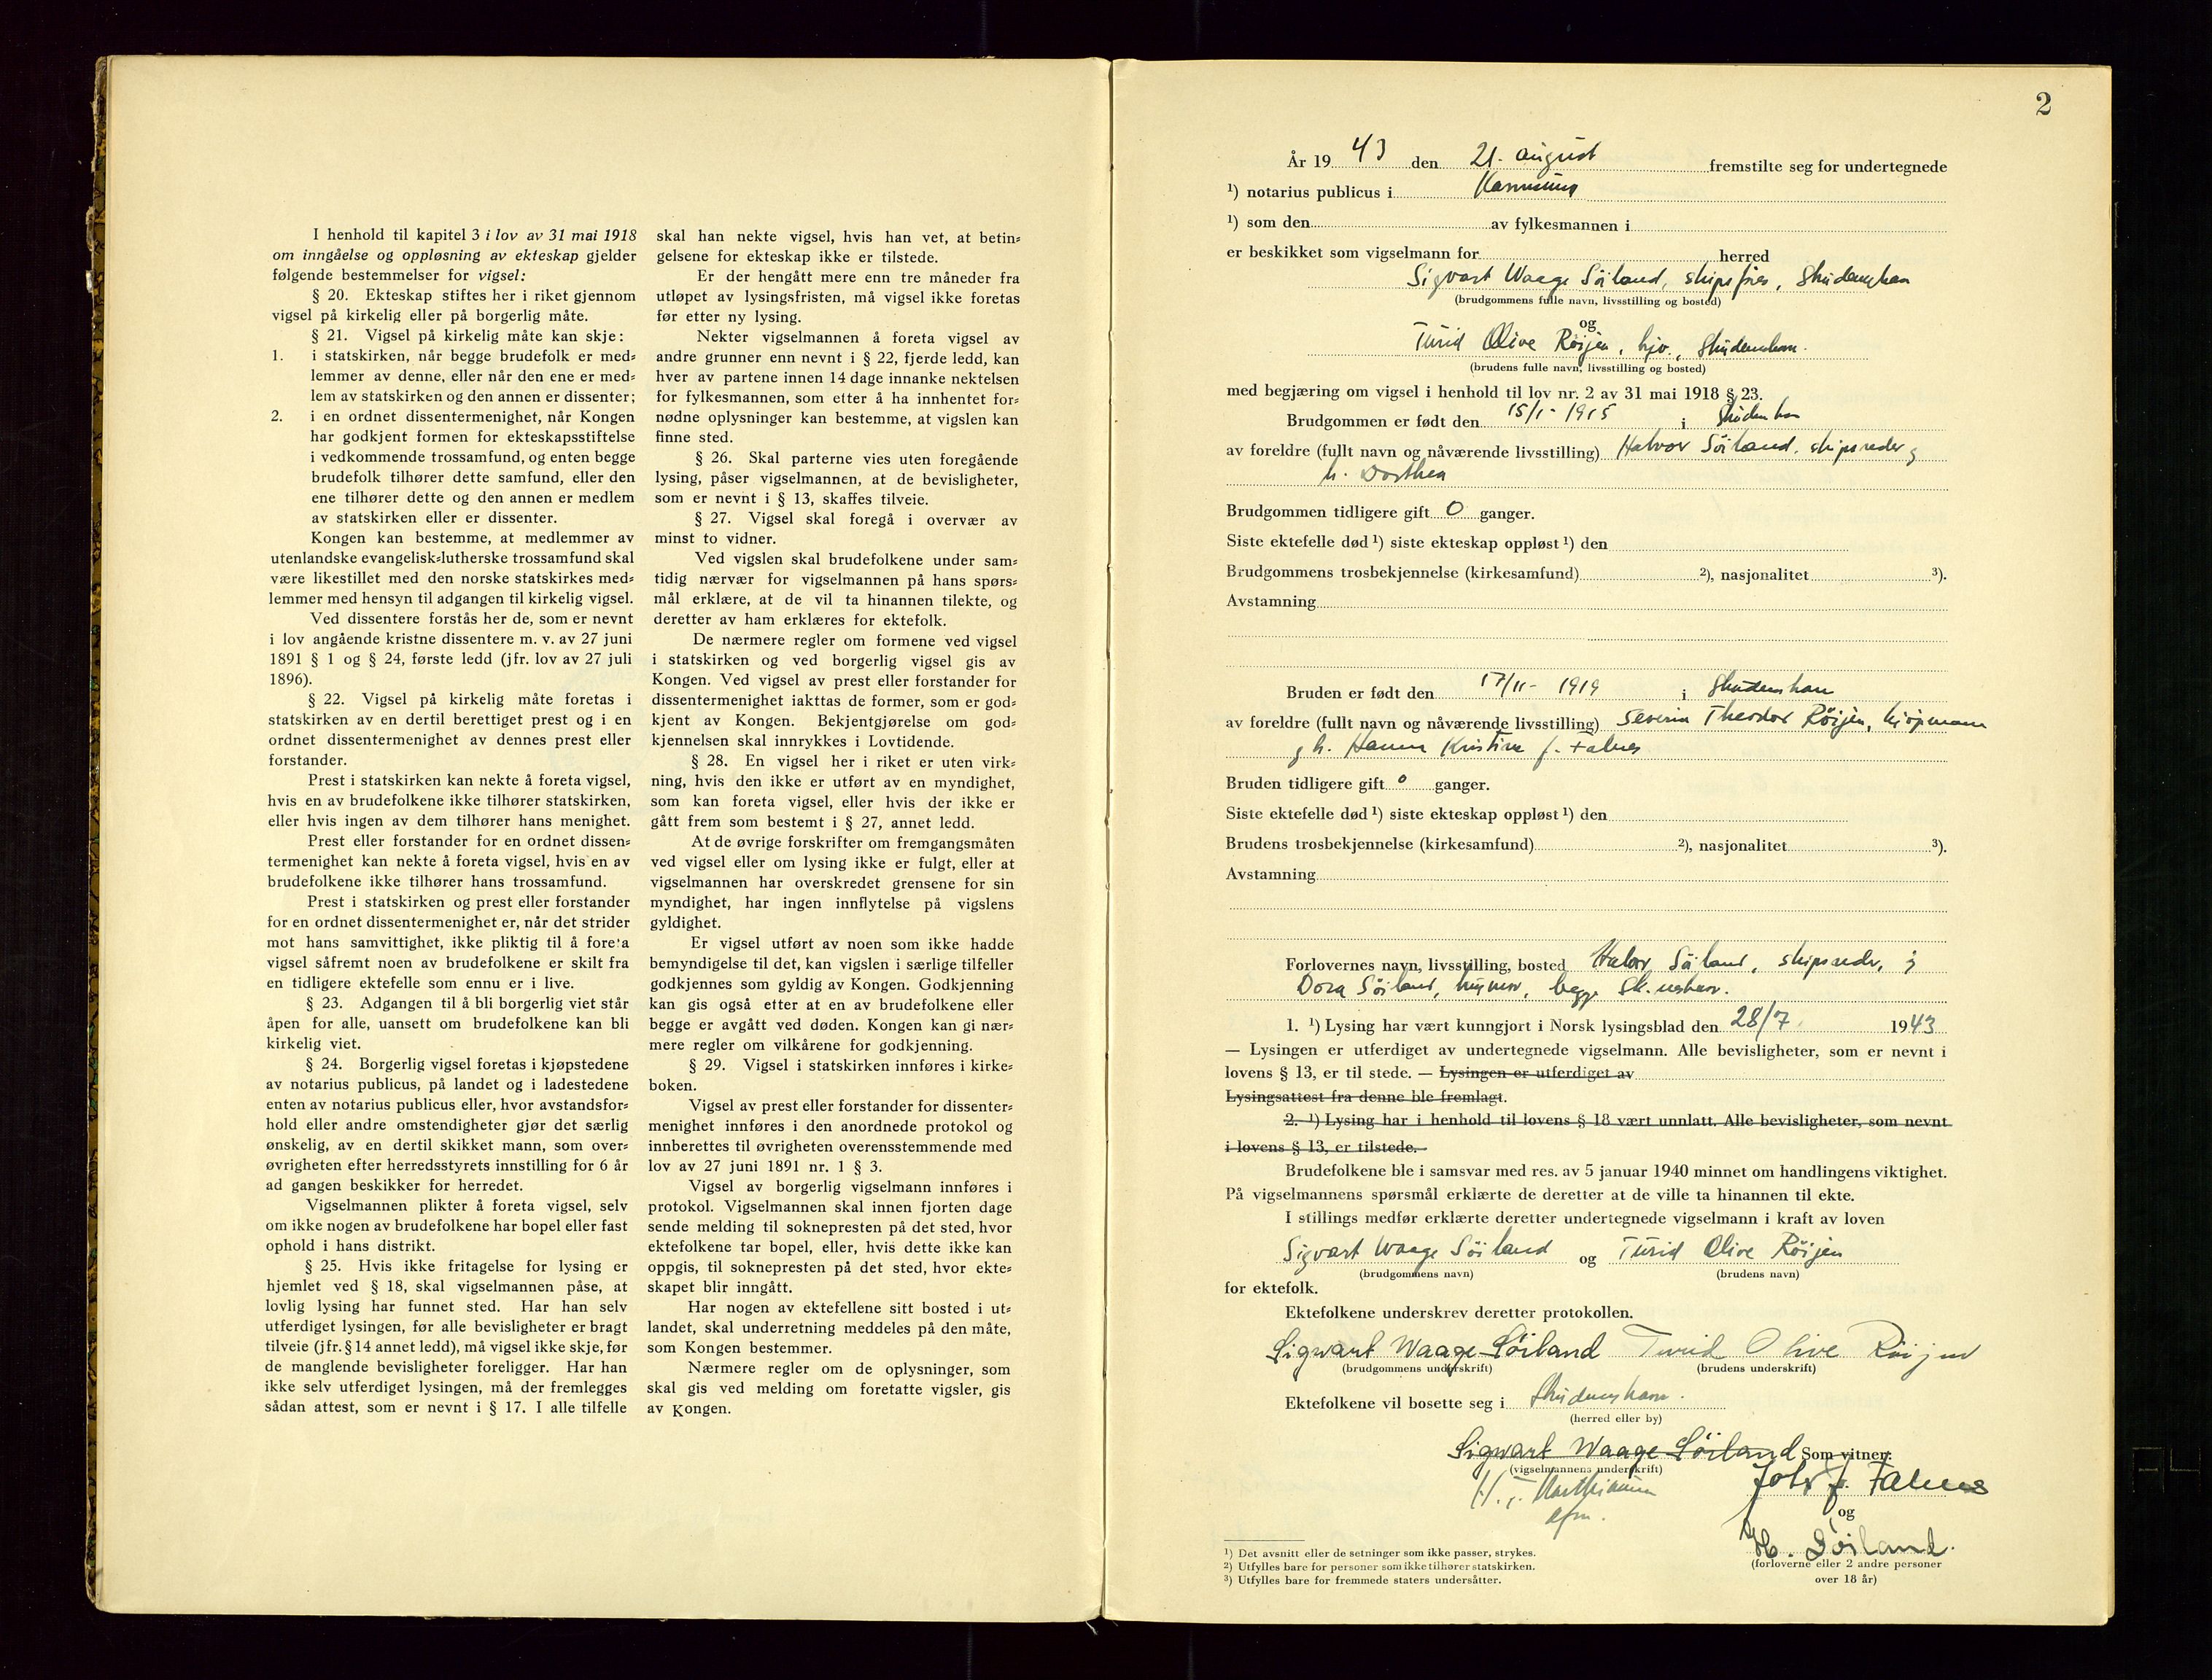 I henhold til kapitel 3 i lov av 31 mai 1918
om inngåelse og oppløsning av ekteskap gjelder
følgende bestemmelser for vigsel:
§ 20. Ekteskap stiftes her i riket gjennom
vigsel på kirkelig eller på borgerlig måte.
§ 21. Vigsel på kirkelig måte kan skje:
1. i statskirken, når begge brudefolk er med-
lemmer av denne, eller når den ene er med-
lem av statskirken og den annen er dissenter;
2. i en ordnet dissentermenighet, når Kongen
har godkjent formen for ekteskapsstiftelse
i vedkommende trossamfund, og enten begge
brudefolk tilhører dette samfund, eller den
ene tilhører dette og den annen er medlem
av statskirken eller er dissenter.
Kongen kan bestemme, at medlemmer av
utenlandske evangelisk-lutherske trossamfund skal
være likestillet med den norske statskirkes med-
lemmer med hensyn til adgangen til kirkelig vigsel.
Ved dissentere forstås her de, som er nevnt
i lov angående kristne dissentere m. v. av 27 juni
1891 § 1 og § 24, første ledd (jfr. lov av 27 juli
1896).
§ 22. Vigsel på kirkelig måte foretas i
statskirken av en dertil berettiget prest og i en
ordnet dissentermenighet av dennes prest eller
forstander.
Prest i statskirken kan nekte å foreta vigsel,
hvis en av brudefolkene ikke tilhører statskirken,
eller hvis ingen av dem tilhører hans menighet.
Prest eller forstander for en ordnet dissen-
termenighet kan nekte å foreta vigsel, hvis en av
brudefolkene ikke tilhører hans trossamfund.
Prest i statskirken og prest eller forstander
for en ordnet dissentermenighet er, når det strider
mot hans samvittighet, ikke pliktig til å foreta
vigsel såfremt noen av brudefolkene er skilt fra
en tidligere ektefelle som ennu er i live.
§ 23. Adgangen til å bli borgerlig viet står
åpen for alle, uansett om brudefolkene kan bli
kirkelig viet.
§ 24. Borgerlig vigsel foretas i kjøpstedene
av notarius publicus, på landet og i ladestedene
enten av notarius publicus eller, hvor avstandsfor-
hold eller andre omstendigheter gjør det særlig
ønskelig, av en dertil skikket mann, som over-
øvrigheten efter herredsstyrets innstilling for 6 år
ad gangen beskikker for herredet.
Vigselmannen plikter å foreta vigsel, selv
om ikke nogen av brudefolkene har bopel eller fast
ophold i hans distrikt.
§ 25. Hvis ikke fritagelse for lysing er
hjemlet ved § 18, skal vigselmannen påse, at
lovlig lysing har funnet sted. Har han selv
utferdiget lysingen, før alle bevisligheter er bragt
tilveie (jfr. § 14 annet ledd), må vigsel ikke skje, før
de manglende bevisligheter foreligger. Har han
ikke selv utferdiget lysingen, må der fremlegges
sådan attest, som er nevnt i § 17. I alle tilfelle
skal han nekte vigsel, hvis han vet, at betin-
gelsene for ekteskap ikke er tilstede.
Er der hengått mere enn tre måneder fra
utløpet av lysingsfristen, må vigsel ikke foretas
før etter ny lysing.
Nekter vigselmannen å foreta vigsel av
andre grunner enn nevnt i § 22, fjerde ledd, kan
hver av partene innen 14 dage innanke nektelsen
for fylkesmannen, som etter å ha innhentet for-
nødne oplysninger kan bestemme, at vigslen kan
finne sted.
§ 26. Skal parterne vies uten foregående
lysing, påser vigselmannen, at de bevisligheter,
som er nevnt i § 13, skaffes tilveie.
§ 27. Vigsel skal foregå i overvær av
minst to vidner.
Ved vigslen skal brudefolkene under sam-
tidig nærvær for vigselmannen på hans spørs-
mål erklære, at de vil ta hinannen tilekte, og
deretter av ham erklæres for ektefolk.
De nærmere regler om formene ved vigsel
i statskirken og ved borgerlig vigsel gis av
Kongen. Ved vigsel av prest eller forstander for
dissentermenighet iakttas de former, som er god-
kjent av Kongen. Bekjentgjørelse om god-
kjennelsen skal innrykkes i Lovtidende.
§ 28. En vigsel her i riket er uten virk-
ning, hvis den ikke er utført av en myndighet,
som kan foreta vigsel, eller hvis der ikke er
gått frem som bestemt i § 27, annet ledd.
At de øvrige forskrifter om fremgangsmåten
ved vigsel eller om lysing ikke er fulgt, eller at
vigselmannen har overskredet grensene for sin
myndighet, har ingen innflytelse på vigslens
gyldighet.
Er vigsel utført av noen som ikke hadde
bemyndigelse til det, kan vigslen i særlige tilfeller
godkjennes som gyldig av Kongen. Godkjenning
kan gis også etter at en av brudefolkene eller
begge er avgått ved døden. Kongen kan gi nær-
mere regler om vilkårene for godkjenning.
§ 29. Vigsel i statskirken innføres i kirke-
boken.
Vigsel av prest eller forstander for dissenter-
menighet innføres i den anordnede protokol og
innberettes til øvrigheten overensstemmende med
lov av 27 juni 1891 nr. 1 § 3.
Vigsel av borgerlig vigselmann innføres i
protokol. Vigselmannen skal innen fjorten dage
sende melding til soknepresten på det sted, hvor
ektefolkene tar bopel, eller, hvis dette ikke kan
oppgis, til soknepresten på det sted, hvor ekte-
skapet blir inngått.
Har nogen av ektefellene sitt bosted i ut-
landet, skal underretning meddeles på den måte,
som Kongen bestemmer.
Nærmere regler om de oplysninger, som
skal gis ved melding om foretatte vigsler, gis
av Kongen.
2
År 19 43 den 21. august fremstilte seg for undertegnede
1) notarius publicus i Karmsund
1) som den av fylkesmannen i
er beskikket som vigselmann for herred
Sigvart Waage Söiland, skipsfører, Skudeneshavn
(brudgommens fulle navn, livsstilling og bosted)
og
Turid Olive Röijen, hjv., Skudeneshavn.
(brudens fulle navn, livsstilling og bosted)
med begjæring om vigsel i henhold til lov nr. 2 av 31 mai 1918 § 23.
Brudgommen er født den 15/1 - 1915 i Skudenhavn
av foreldre (fullt navn og nåværende livsstilling) Halvor Söiland, skipsreder og
h. Dorthea
Brudgommen tidligere gift 0 ganger.
Siste ektefelle død 1) siste ekteskap oppløst 1) den
Brudgommens trosbekjennelse (kirkesamfund) 2), nasjonalitet 3).
Avstamning
Bruden er født den 17/11 - 1919 i Skudeneshavn
av foreldre (fullt navn og nåværende livsstilling) Severin Theodor Röijen, kjöpmann
og h. Hanna Kristine f. Falnes
Bruden tidligere gift 0 ganger.
Siste ektefelle død 1) siste ekteskap oppløst 1) den
Brudens trosbekjennelse (kirkesamfund) 2), nasjonalitet 3).
Avstamning
Forlovernes navn, livsstilling, bosted Halvor Söiland, skipsreder, og
Dora Söiland, husmor, begge Sk.neshavn.
1. 1) Lysing har vært kunngjort i Norsk lysingsblad den 28/7 1943
— Lysingen er utferdiget av undertegnede vigselmann. Alle bevisligheter, som er nevnt i
lovens § 13, er til stede. — Lysingen er utferdiget av
Lysingsattest fra denne ble fremlagt.
2. 1) Lysing har i henhold til lovens § 18 vært unnlatt. Alle bevisligheter, som nevnt
i lovens § 13, er tilstede.
Brudefolkene ble i samsvar med res. av 5 januar 1940 minnet om handlingens viktighet.
På vigselmannens spørsmål erklærte de deretter at de ville ta hinannen til ekte.
I stillings medfør erklærte deretter undertegnede vigselmann i kraft av loven
Sigvart Waage Söiland og Turid Olive Röijen
(brudgommens navn) (brudens navn)
for ektefolk.
Ektefolkene underskrev deretter protokollen.
Sigwart Waage Söiland Turid Olive Röijen
(brudgommens underskrift) (brudens underskrift)
Ektefolkene vil bosette seg i Skudeneshavn.
(herred eller by)
Sigwart Waage Söiland Som vitner:
(vigselmannens underskrift)
Falnes
og
H. Söiland.
(forloverne eller 2 andre personer
over 18 år)
1) Det avsnitt eller de setninger som ikke passer, strykes.
2) Utfylles bare for personer som ikke tilhører statskirken.
3) Utfylles bare for fremmede staters undersåtter.